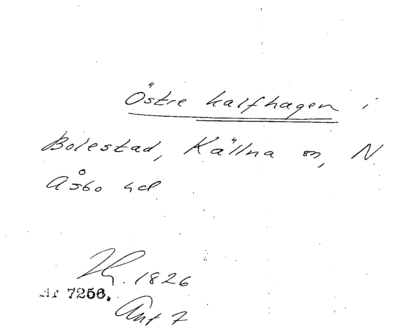 Östre kalfhagen i
Bolestad, Källna sn, N
Åsbo hd
1826
Nr 7256.
Ant 7